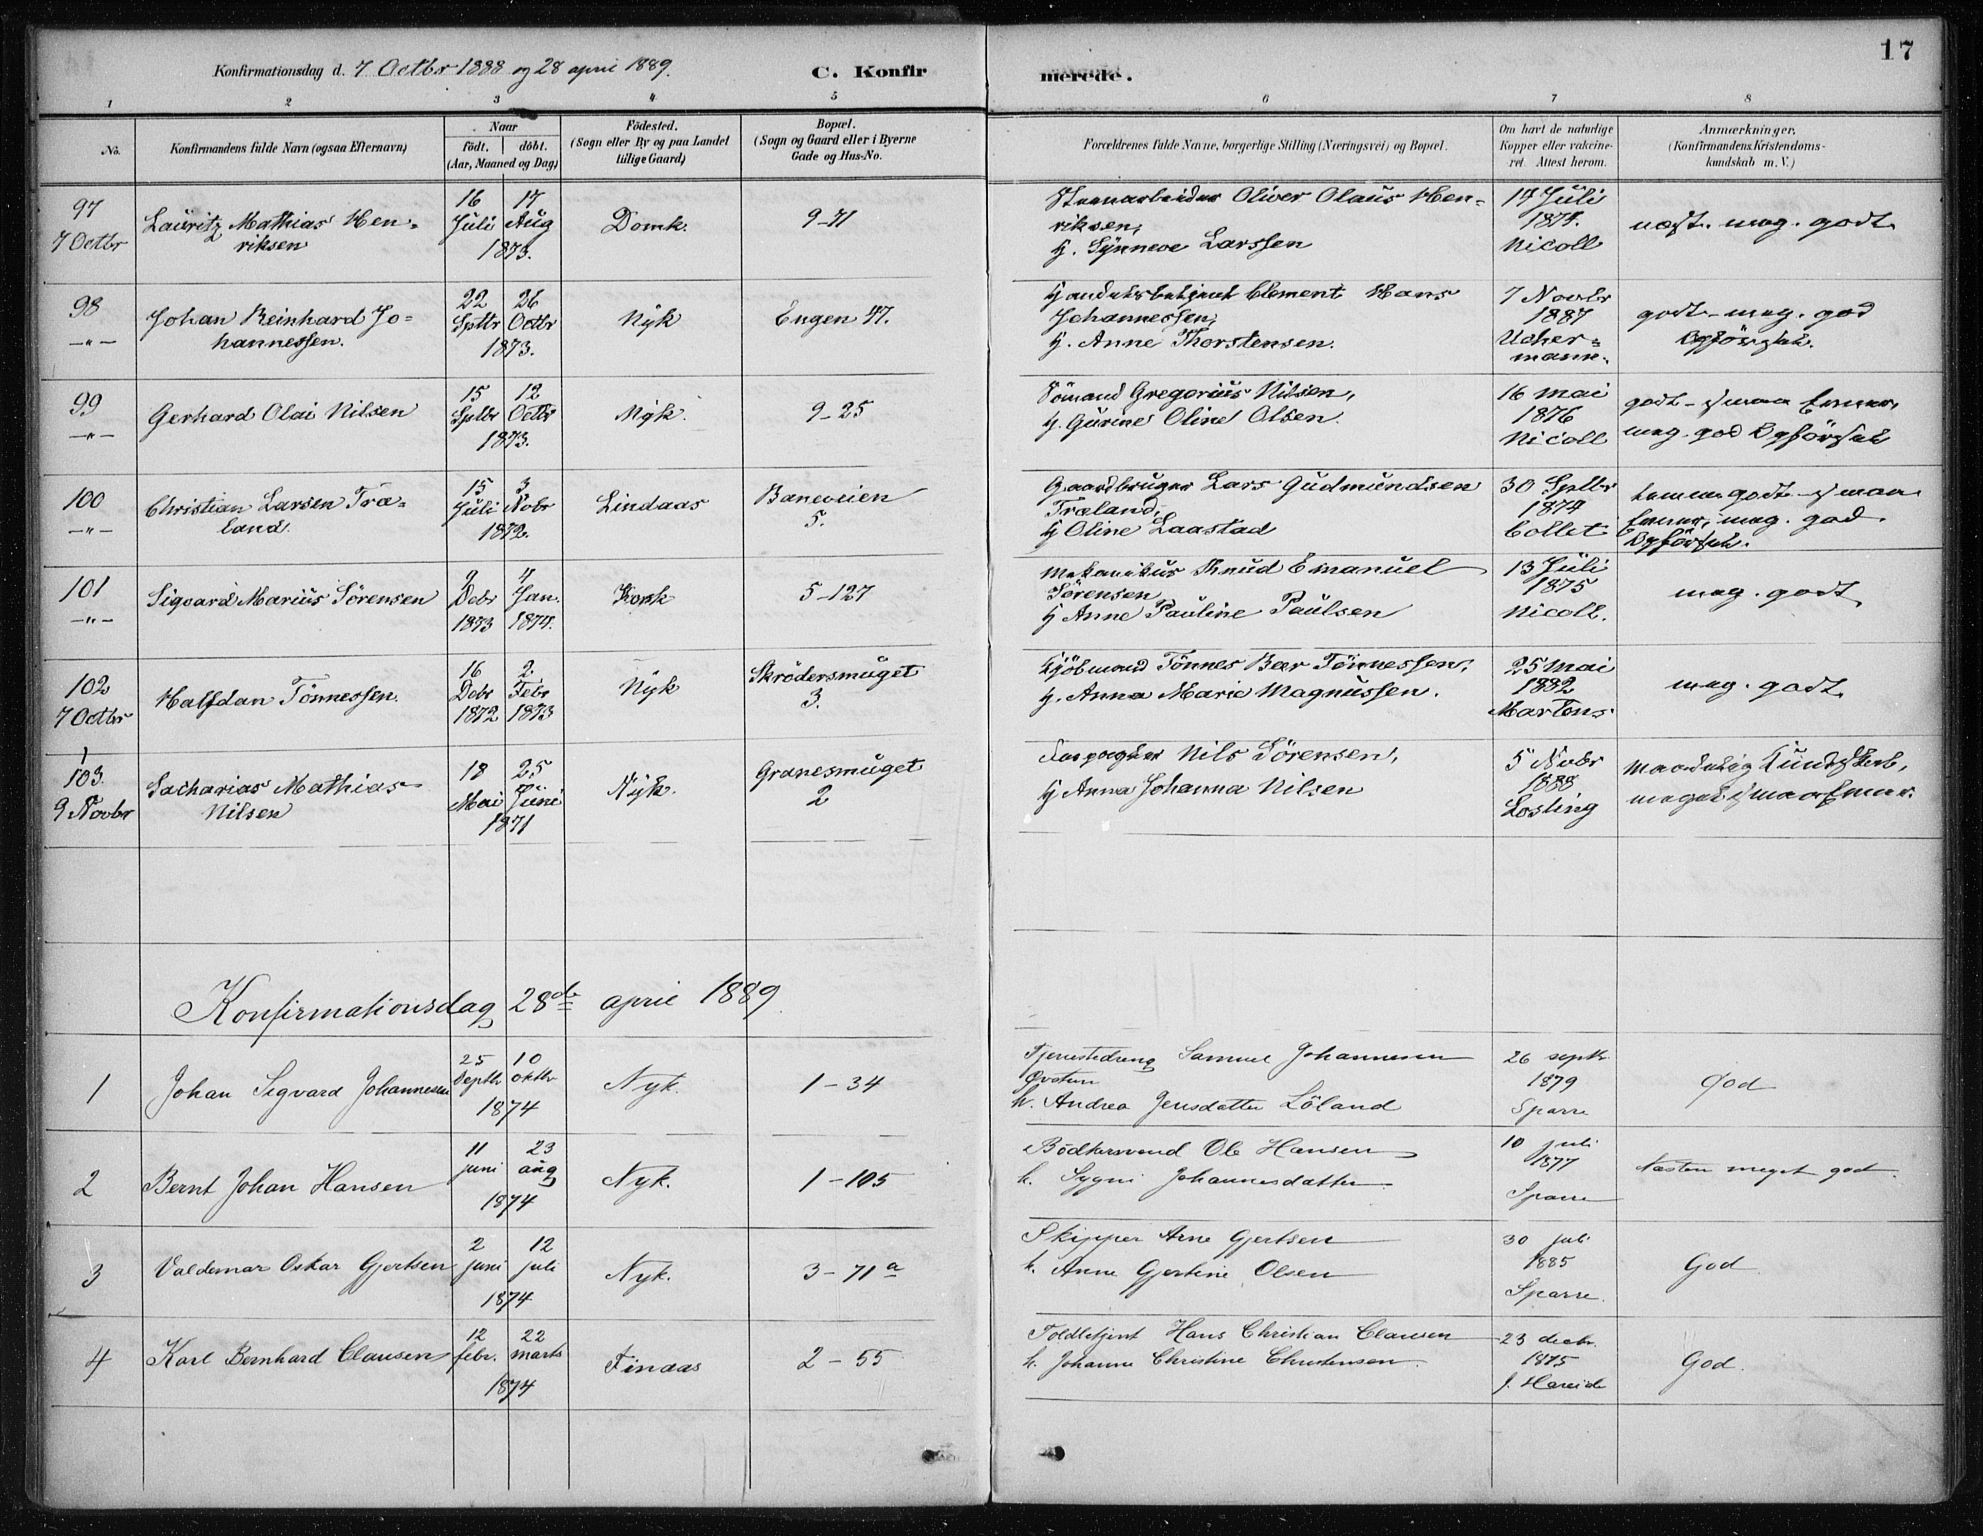 17
Konfirmationsdag d. 7 Octbr 1888 og 28 april 1889.
C. Konfir merede.
1 2 3 4 5 6 7 8
No.
Konfirmandens fulde Navn (ogsaa Efternavn)
Naar
født. døbt.
(Aar, Maaned og Dag)
Fødested.
(Sogn eller By og paa Landet
tillige Gaard)
Bopæl.
(Sogn og Gaard eller i Byerne
Gade og Hus-No.
Forældrenes fulde Navne, borgerlige Stilling (Næringsvei) og Bopæl.
Om havt de naturlige
Kopper eller vakcine-
ret. Attest herom.
Anmærkninger.
(Konfirmandens Kristendoms-
kundskab m. V.)
97
7 Octbr
Lauritz Mathias Hen-
riksen
16 17
Juli Aug
1873.
Domk.
9-71
Oliver Olaus Hen-
riksen,
H. Synneve Larssen
17 Juli
1874.
Nicoll
næst. meg. godt
98
-"-
Johan Reinhard Jo-
hannessen.
22 26
Sptbr Octbr
1873.
Nyk
Engen 47.
Clement Hans
Johannessen,
H. Anne Thorstensen.
7 Novbr
1887
Ucher-
mann.
godt - meg. god
Opførsel.
99
-"-
Gerhard Olai Nilsen
15 12
Sptbr Octbr
1873.
Nyk.
9-25
Sömand Gregorius Nilsen,
H. Gurine Oline Olsen.
16 mai
1876
Nicoll
godt -
meg. god Opførsel
100
-"-
Christian Larsen Træ-
land.
15 3
Juli Nobr
1872.
Lindaas
Baneveien
5.
Gaardbruger Lars Gudmundsen
Træland,
H Oline Laastad
30 Sptbr
1874
Collet
godt
meg. god
Opførsel.
101
-"-
Sigvard Marius Sörensen
9 4
Debr Jan.
1873 1874.
Korsk
5-127
Mekanikus Knud Emanuel
Sörensen
H Anne Pauline Paulsen
13 Juli
1875
Nicoll.
meg. godt
102
7 Octbr
Halfdan Tönnessen.
16 2
Debr Febr
1872 1873
Nyk
Skrödersmuget
3.
Kjöbmand Tönnes Beer Tönnessen,
H. Anna Marie Magnussen.
25 Mai
1882
Martens
meg. godt
103.
9 Novbr
Sacharias Mathias
Nilsen
18 25
Mai Juni
1871
Nyk.
Granesmuget
2
Nils Sörensen,
H Anna Johanna Nilsen
5 Nvbr
1888
Losting
Konfirmationsdag 28de april 1889
1
Johan Sigvard Johannesen
25 10
septbr oktbr
1874
Nyk.
1-34
Samuel Johannesen
h. Andrea Jensdatter Löland
26 septbr
1879
Sparre
God
2
Bernt Johan Hansen
11 23
juni aug
1874
Nyk.
1-105
Bödkersvend Ole Hansen
h. Sygni Johannesdatter
10 juli
1877
Sparre
Næsten meget god.
3
Valdemar Oskar Gjertsen
2 12
juni juli
1874
Nyk.
3-71 a
Skipper Arne Gjertsen
h. Anne Gjertine Olsen
30 juli
1885
Sparre.
God
4
Karl Bernhard Clausen
12 22
febr. marts
1874
Finaas
2-55
Toldbetjent Hans Christian Clausen
h. Johanne Christine Christensen.
23 decbr.
1875
J. Hareide
God.